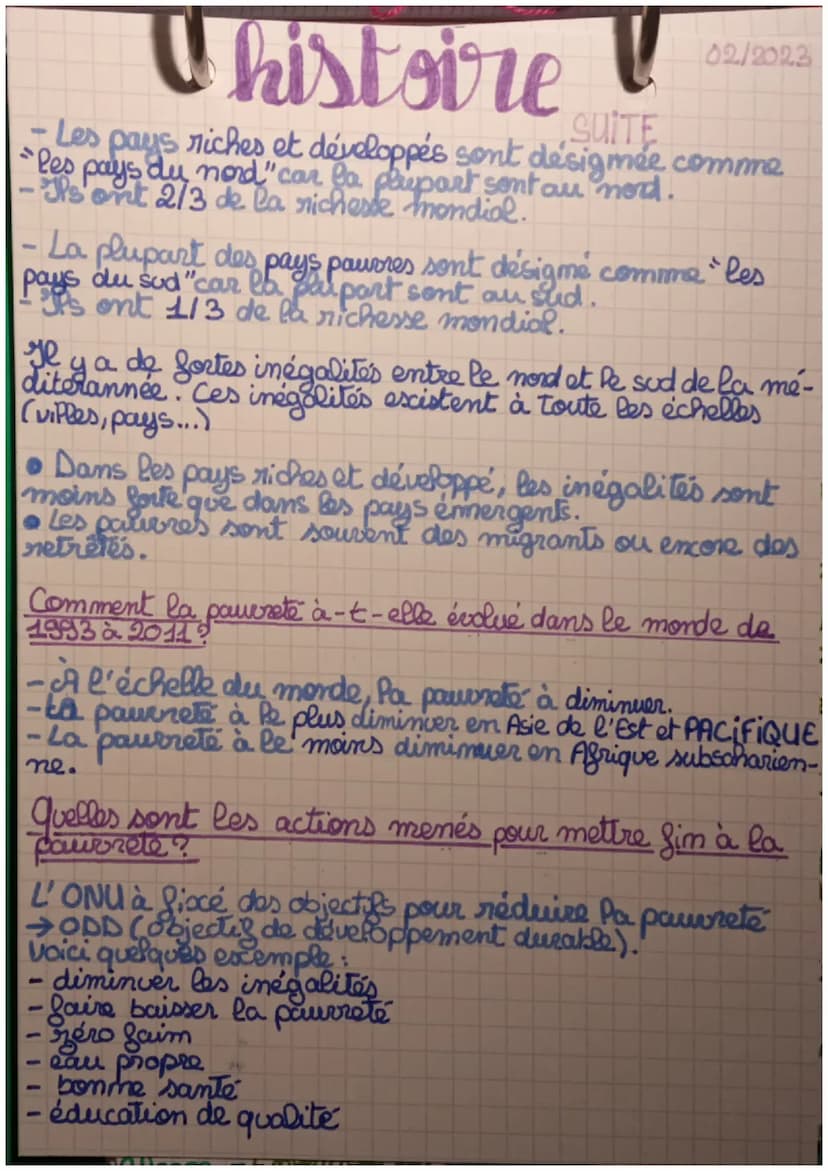 histoire
02/2023
SUITE
- Les pays riches et développés sont désignée comme
"les pays du nord" car la plupart sont au nord.
- Ils ont 2/3 de la richesse mondial.
- La plupart des pays pauvres sont désigné comme "les
pays du sud" car la plupart sont au sud.
- Ils ont 1/3 de la richesse mondial.
Il y a de fortes inégalités entre le nord et le sud de la mé-
diterannée. Ces inégalités escistent à toute les échelles
(villes, pays...)
• Dans les pays riches et développé, les inégalités sont
moins forte que dans les pays émergents.
• Les pauvres sont souvent des migrants ou encore des
retretés.
Comment la pauvreté à-t-elle évolué dans le monde de
1993 à 2011 ?
- À l'échelle du monde, la pauvreté à diminuer.
- La pauvreté à le plus diminuer en Asie de l'Est et PACiFiQUE
- La pauvreté à le moins diminuer en Afrique subsaharien-
ne.
Quelles sont les actions menés pour mettre fin à la
pauvreté ?
L'ONU à fixé des objectifs pour réduire la pauvreté
→ ODD (objectif de développement durable).
Voici quelques escemple :
- diminuer les inégalités
- faire baisser la pauvreté
- zéro faim
- eau propre
- bonne santé
- éducation de qualité